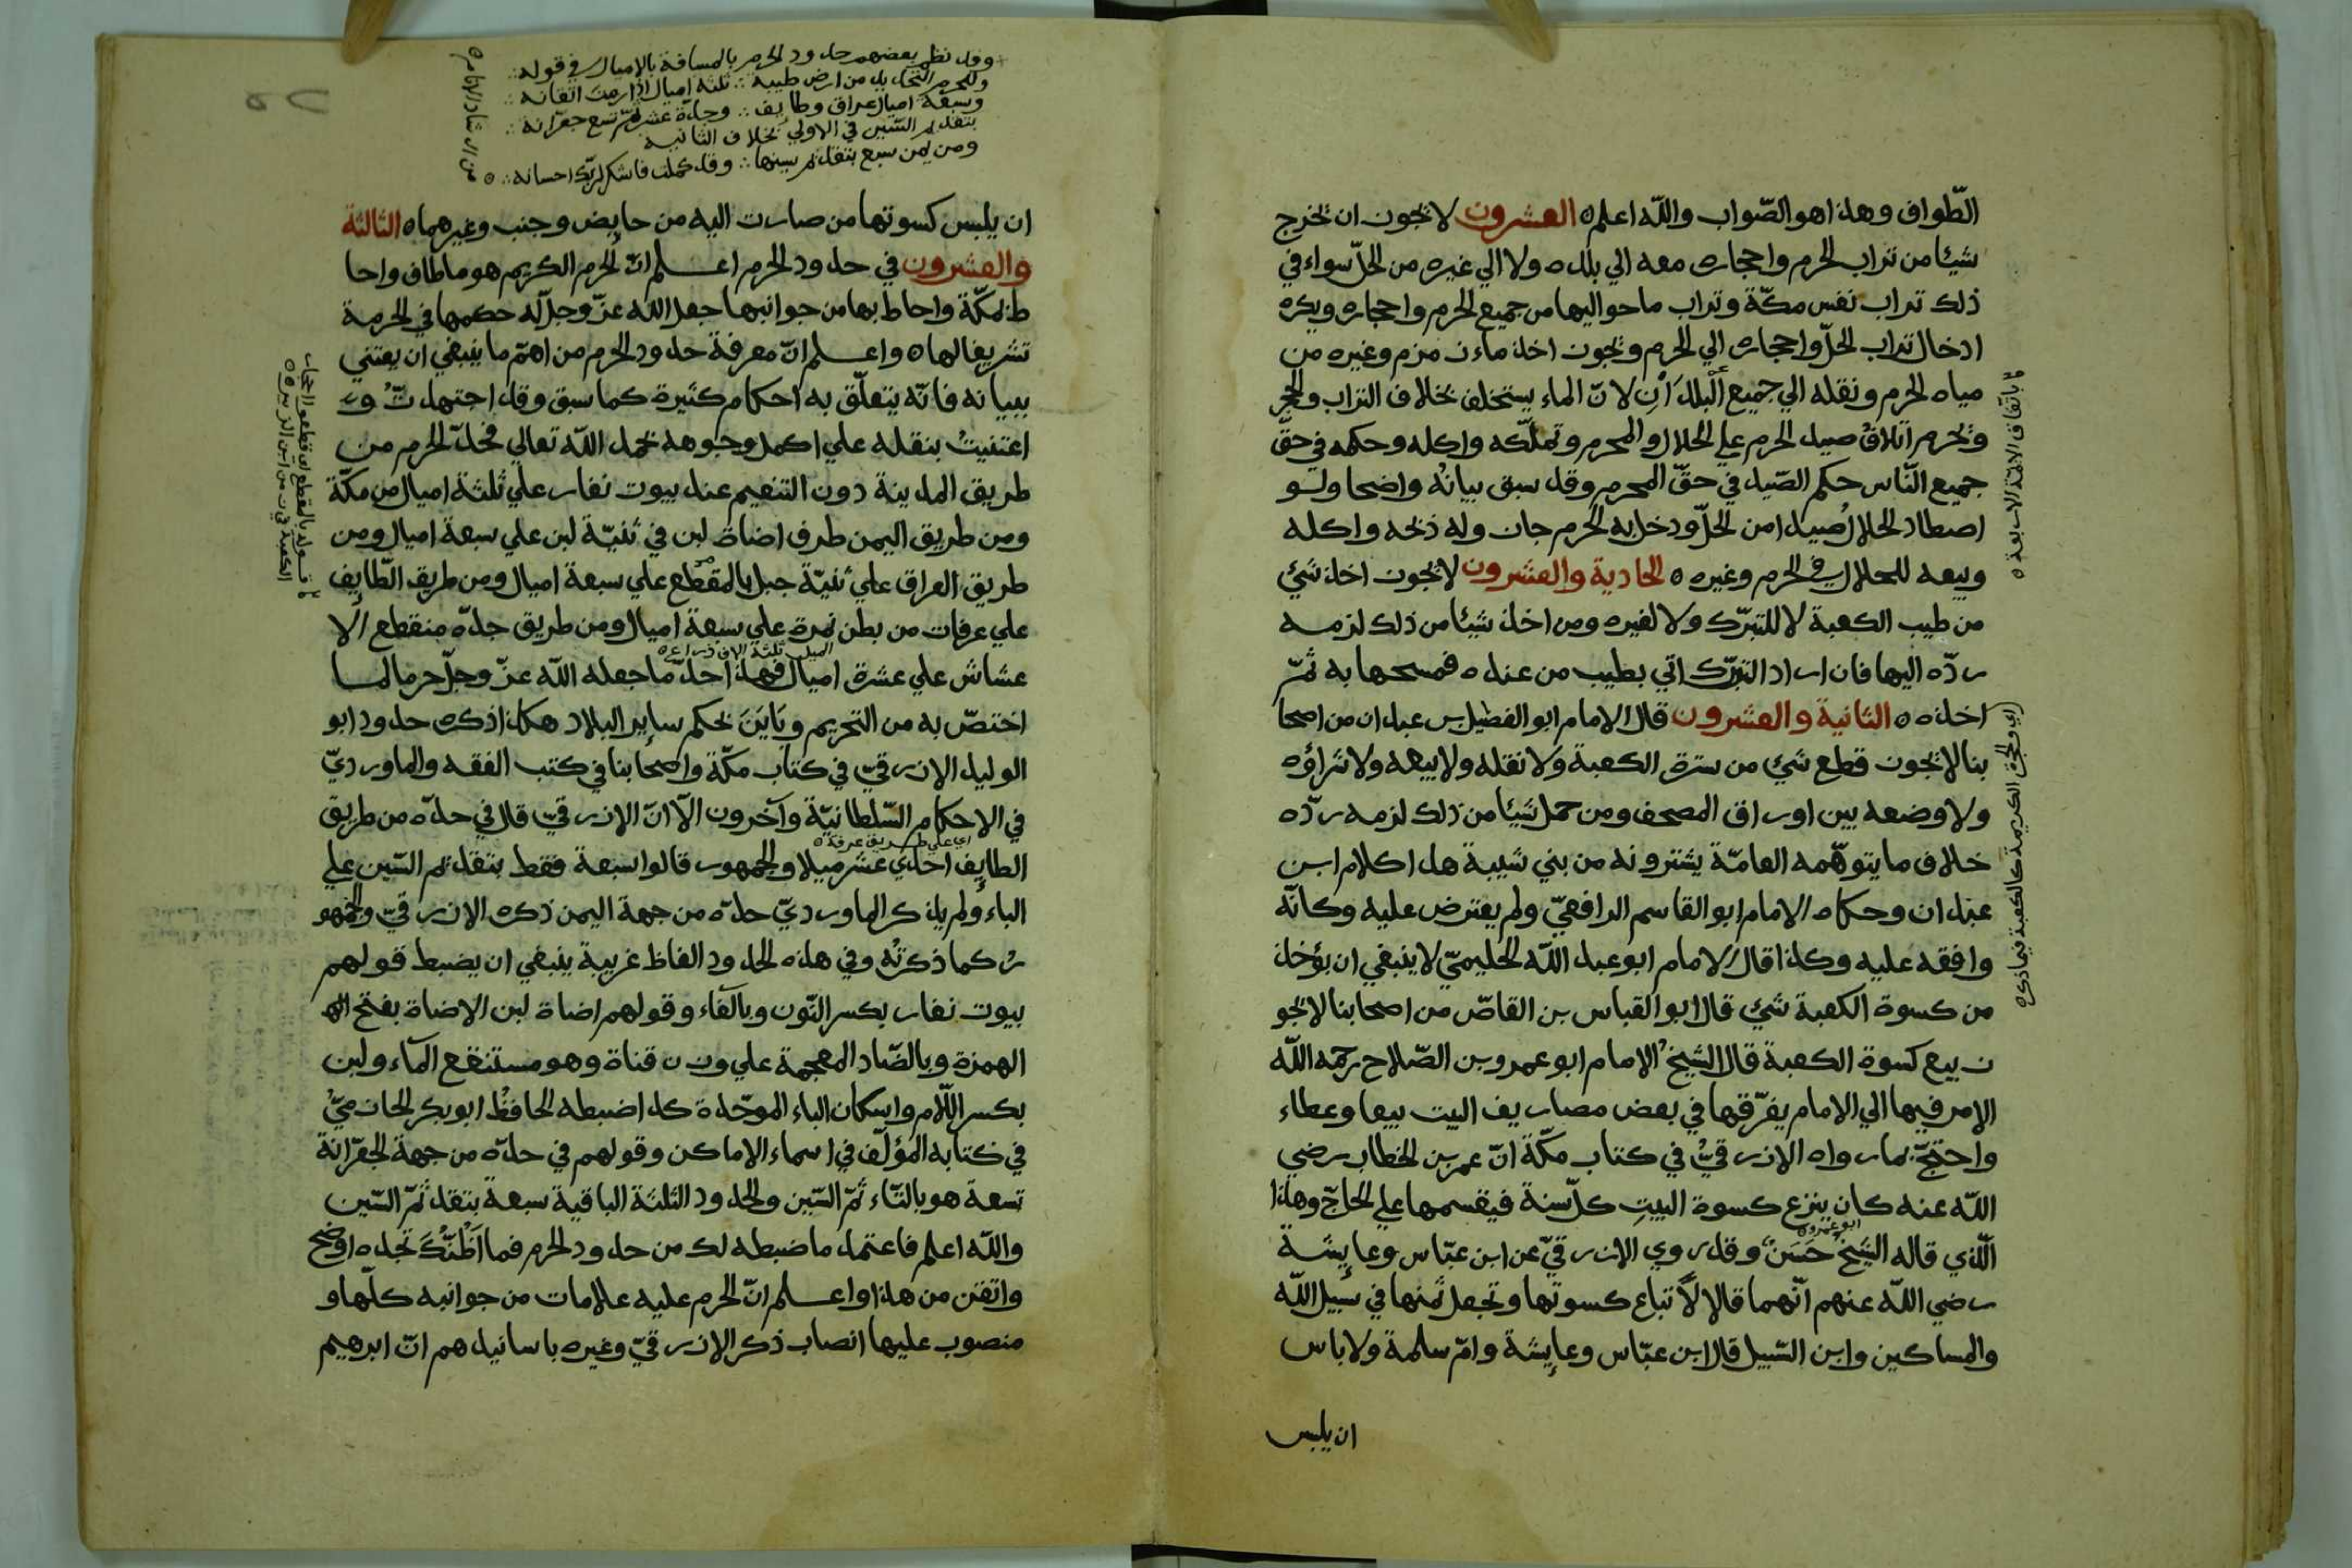 الطّواف وهذا هو الصّواب واللّه اعلم ه العشرون لا يجوز ان يخرج
شيئا من تراب الحرم واحجاره معه الي بلده ولا الي غيره من الحلّ سواء في
ذلك تراب نفس مكّة وتراب ما حواليها من جميع الحرم واحجاره ويكره
ادخال تراب الحلّ واحجاره الي الحرم ويجوز اخذ ماء زمزم وغيره من
مياه الحرم ونقله الي جميع البلدان لانّ الماء يستخلف بخلاف التراب والحجر
ويحرم اتلاف صيد الحرم علي الحلال والمحرم وتملّكه واكله وحكمه في حقّ
جميع النّاس حكم الصّيد في حقّ المحرم وقد سبق بيانه واضحا ولو
اصطاد الحلال صيدا من الحلّ ودخل به الحرم جاز وله ذبحه واكله
وبيعه للحلال في الحرم وغيره ه الحادية والعشرون لا يجوز اخذ شئ
من طيب الكعبة لا للتبرّك ولا لغيره ومن اخذ شيئا من ذلك لزمه
ردّه اليها فان اراد التبرّك اتي بطيب من عنده فمسحها به ثمّ
اخذه ه الثانية والعشرون قال الامام ابو الفضل بن عبدان من اصحا
بنا لا يجوز قطع شئ من سترة الكعبة ولا نقله ولا بيعه ولا شراؤه
ولا وضعه بين اوراق المصحف ومن حمل شيئا من ذلك لزمه ردّه
خلاف ما يتوهّمه العامّة يشترونه من بني شيبة هذا كلام ابن
عبدان وحكاه الامام ابو القاسم الرافعيّ ولم يعترض عليه وكانّه
وافقه عليه وكذا قال الامام ابو عبد اللّه الحليميّ لا ينبغي ان يؤخذ
من كسوة الكعبة شئ قال ابو العباس بن القاصّ من اصحابنا لا يجو
ز بيع كسوة الكعبة قال الشيخ الامام ابو عمرو بن الصّلاح رحمه اللّه
الامر فيها الي الامام يفرّقها في بعض مصاريف البيت بيعا وعطاء
واحتجّ بما رواه الازرقيّ في كتاب مكّة انّ عمر بن الخطاب رضي
اللّه عنه كان ينزع كسوة البيت كلّ سنة فيقسمها علي الحاجّ وهذا
الّذي قاله الشيخ ابو عمرو ه حسن وقد روي الازرقيّ عن ابن عبّاس وعايشة
رضي اللّه عنهم انّهما قالا لا تباع كسوتها وتجعل ثمنها في سبيل اللّه
والمساكين وابن السّبيل قال ابن عبّاس وعايشة وامّ سلمة ولا باس
ان يلبس
باتّفاق الائمّة الاربعة ه
اي والحجرة الكريمة كالكعبة فيما ذكره
وقد نظم بعضهم حدود الحرم بالمسافة بالاميال في قوله
وللحرم التحديد من ارض طيبة ∴ ثلثة اميال اذا رمت اتقانه
وسبعة اميال عراق وطايف ∴ وجدّة عشر ثمّ تسع جعرّانه
بتقديم السّين في الاولي بخلاف الثانية
ومن يمن سبع بتقديم سينها ∴ وقد كملت فاشكر لربّك احسانه ∴ ه
ان يلبس كسوتها من صارت اليه من حايض وجنب وغيرهما ه الثالثة
والعشرون في حدود الحرم اعلم انّ الحرم الكريم هو ما طاف واحا
ط بمكّة واحاط بها من جوانبها جعل اللّه عزّ وجلّ له حكمها في الحرمة
تشريفا لها ه واعلم انّ معرفة حدود الحرم من اهمّ ما ينبغي ان يعتني
ببيانه فانّه يتعلّق به احكام كثيرة كما سبق وقد اجتهدتّ و
اعتنيت بنقله علي اكمل وجوهه بحمد اللّه تعالي فحدّ الحرم من
طريق المدينة دون التنعيم عند بيوت نفار علي ثلثة اميال من مكّة
ومن طريق اليمن طرف اضاة لبن في ثنيّة لبن علي سبعة اميال ومن
طريق العراق علي ثنيّة جبل بالمقطع علي سبعة اميال ومن طريق الطّايف
علي عرفات من بطن نمرة علي سبعة اميال ومن طريق جدّة منقطع الا
الميل ثلثة الاف ذراع ه
عشاش علي عشرة اميال فهذا حدّ ما جعله اللّه عزّ وجلّ حرما لما
اختصّ به من التحريم وباين بحكم ساير البلاد هكذا ذكره حدود ابو
الوليد الازرقيّ في كتاب مكّة واصحابنا في كتب الفقه والماورديّ
في الاحكام السّلطانيّة وآخرون الّا انّ الازرقيّ قال في حدّه من طريق
اي علي طريق عرفة ه
الطايف احدي عشر ميلا والجمهور قالوا سبعة فقط بتقديم السّين علي
الباء ولم يذكر الماورديّ حدّه من جهة اليمن ذكره الازرقيّ والجمهو
ر كما ذكرته وفي هذه الحدود الفاظ غريبة ينبغي ان يضبط قولهم
بيوت نفار بكسر النّون وبالفاء وقولهم اضاة لبن الاضاة بفتح اله
الهمزة وبالضّاد المعجمة علي وزن قناة وهو مستنقع الماء ولبن
بكسر اللّام واسكان الباء الموحّدة كذا ضبطه الحافظ ابو بكر الحازميّ
في كتابه المؤلّف في اسماء الاماكن وقولهم في حدّه من جهة الجعرّانة
تسعة هو بالتّاء ثمّ السّين والحدود الثلثة الباقية سبعة بتقديم السّين
واللّه اعلم فاعتمد ما ضبطه لك من حدود الحرم فما اظنّك تجده اوضح
واتقن من هذا واعلم انّ الحرم عليه علامات من جوانبه كلّها و
منصوب عليها انصاب ذكر الازرقيّ وغيره باسانيدهم انّ ابرهيم